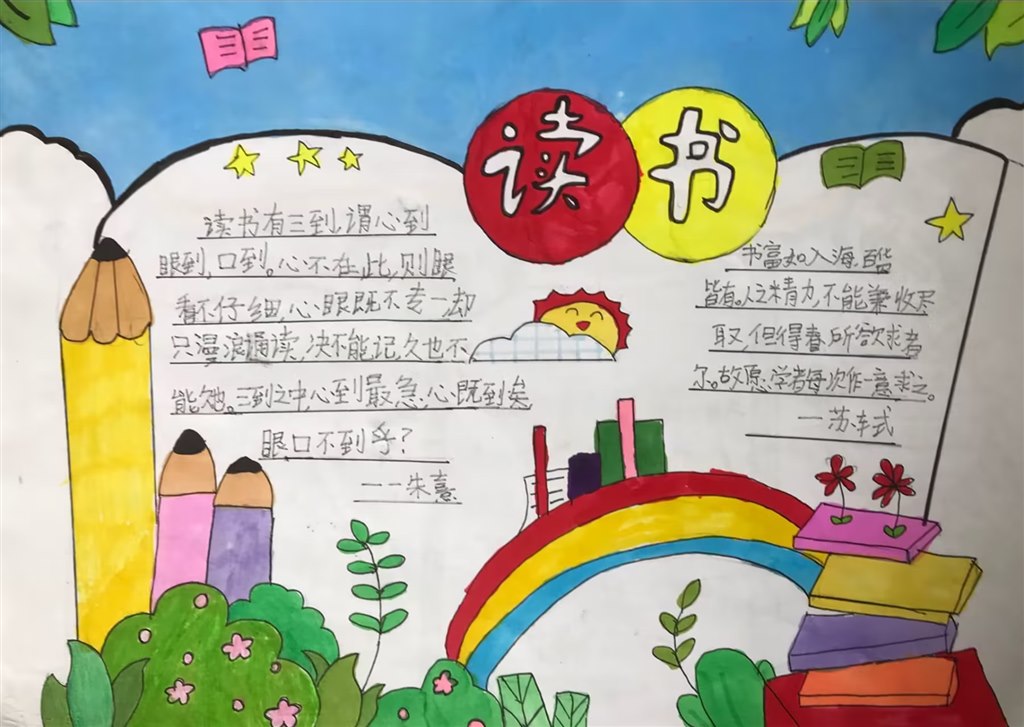 读书
读书有三到,谓心到
眼到,口到。心不在此,则眼
看不仔细,心眼既不专一却
只漫浪诵读,决不能记,久也不
能久也。三到之中,心到最急,心既到矣
眼口不到乎?
——朱熹
书富如入海,百货
皆有。人之精力,不能兼收尽
取,但得春,所欲求者
尔。故愿学者每次作一意求之。
—苏轼